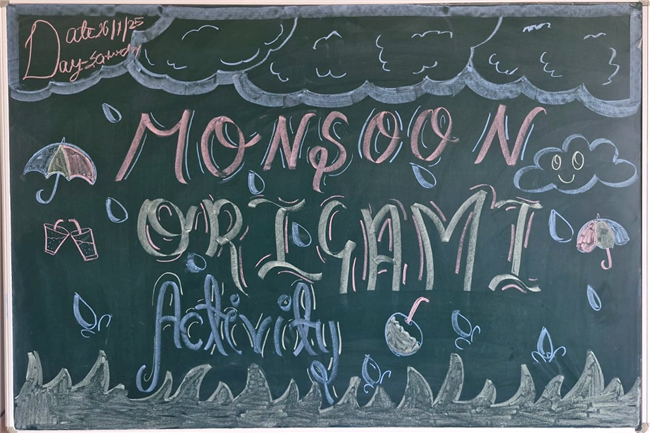 Date:26/7/25
Day-Saturday
MONSOON
ORIGAMI
Activity